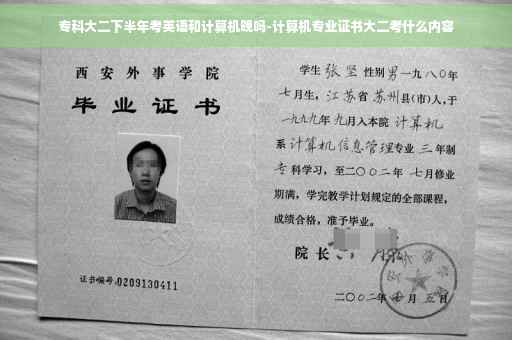 专科大二下半年考英语和计算机晚吗-计算机专业证书大二考什么内容
西安外事学院
毕业证书
证书编号:0209130411
学生 张坚 性别 男 一九八〇年
七月生, 江苏省 苏州县(市)人, 于
一九九九年 九月入本院 计算机
系 计算机信息管理专业 三 年制
专 科学习, 至二〇〇二年 七月修业
期满, 学完教学计划规定的全部课程,
成绩合格, 准予毕业。
院 长
二〇〇二年 月 五日